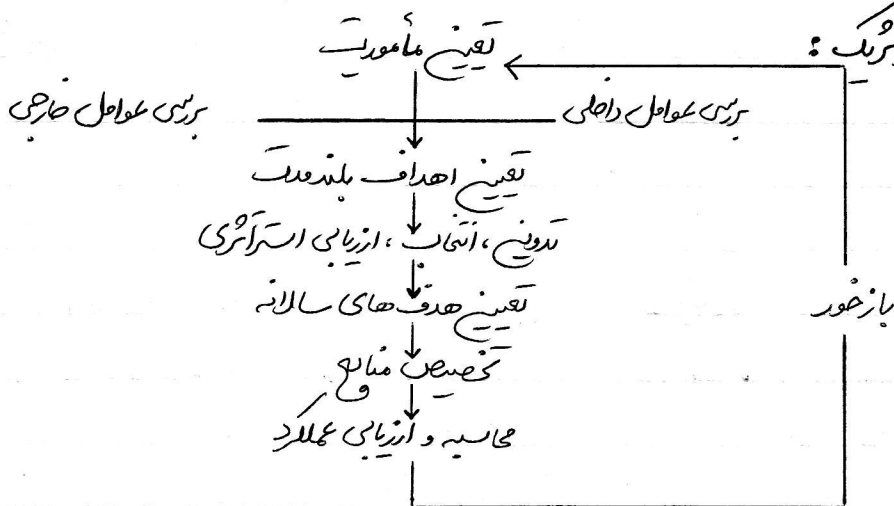 تعیین مأموریت
بررسی عوامل داخلی
بررسی عوامل خارجی
تعیین اهداف بلندمدت
تدوین، انتخاب، ارزیابی استراتژی
تعیین هدف‌های سالانه
بازخور
تخصیص منابع
محاسبه و ارزیابی عملکرد